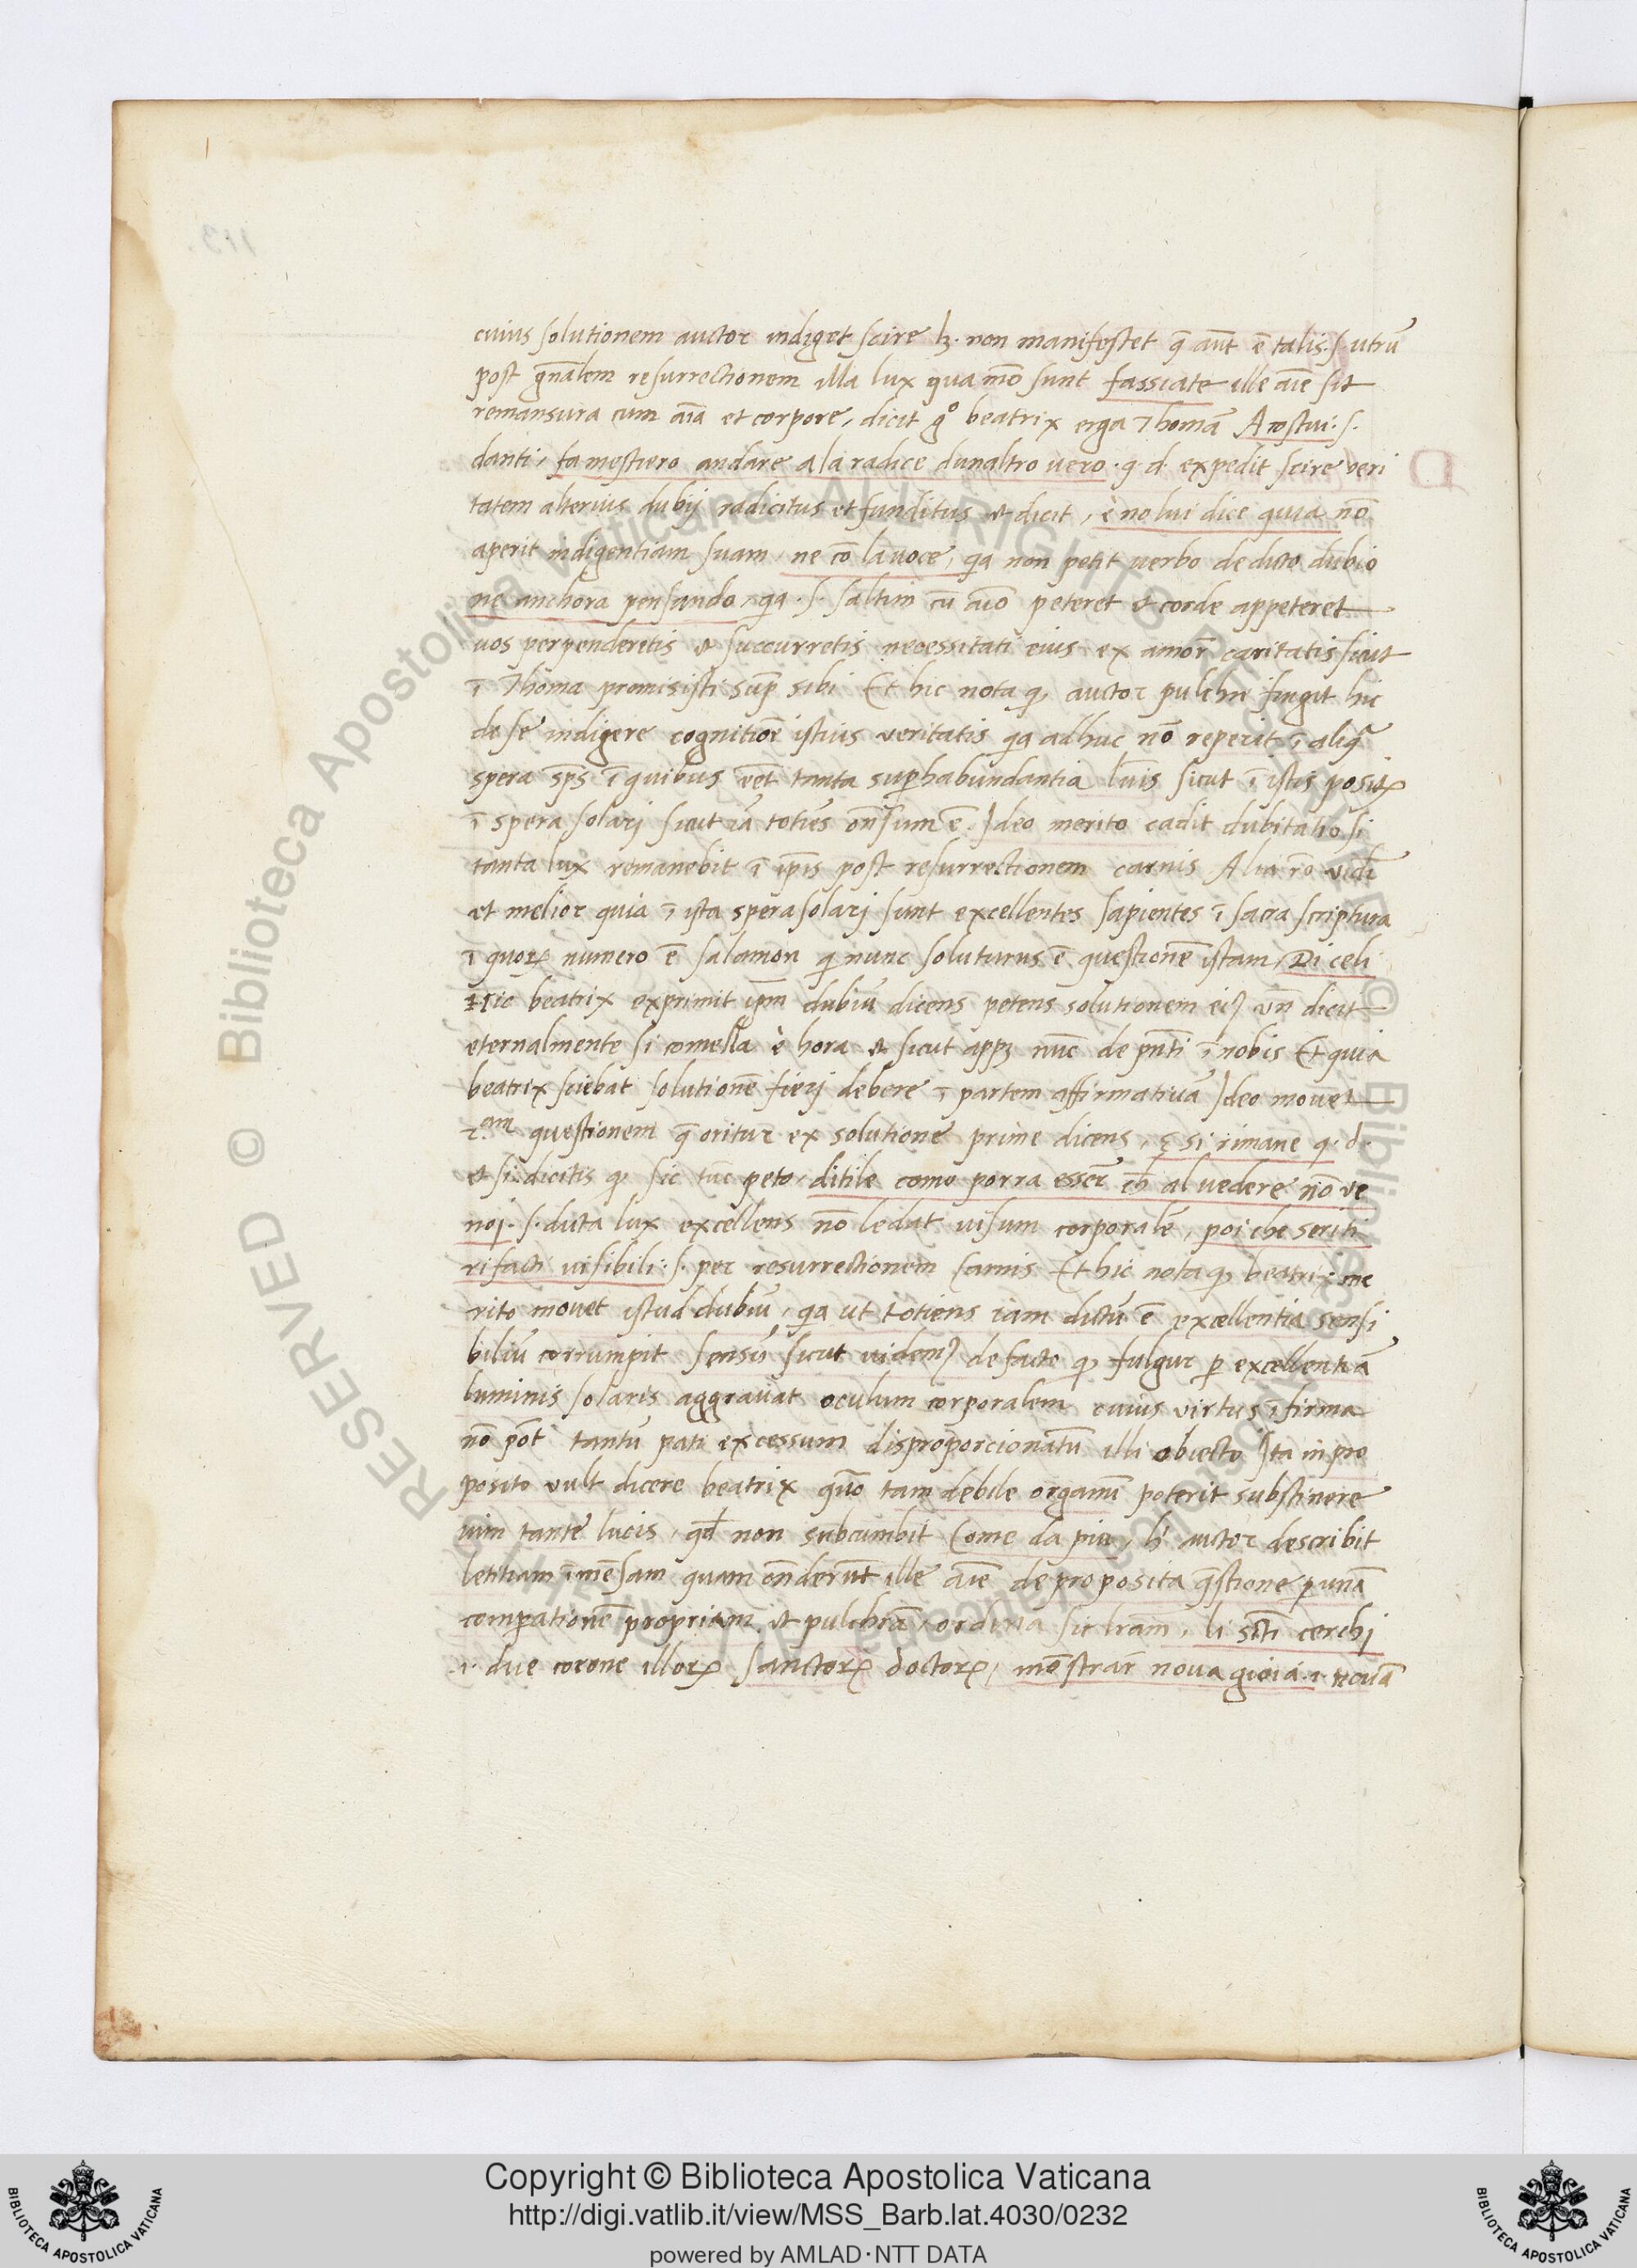 cuius solutionem auctor indiget scire lꝫ. non manifestet q̄ aūt ē talis .s. utrū
post gn̄alem resurrectionem illa lux qua mō sunt fassiate ille aīe sit
remansura cum aīa et corpore, dicit gͦ beatrix erga Thomā A costui .s.
danti, fa mestiero andare a la radice dunaltro vero .q.d. expedit scire veri
tatem alterius dubij radicitus et funditus et dicit, e no lui dice quia nō
aperit indigentiam suam, ne cō la voce, qa non petit verbo de dicto dubio
ne anchora pensando, qa .s. saltim cū aīo peteret et corde appeteret
vos perpenderetis et succurretis necessitati eius ex amor̄ caritatis sicut
ī Thoma promisisti sup̄ sibi Et hic nota ꝙ auctor pulchre fingit hic
de se indigere cognitiōe istius veritatis qa adhuc nō reperit ī aliq̄
spera sp̄s ī quibus eēt tanta suꝑhabundantia lūis sicut ī istis positꝭ
ī spera solarj sicut iā totiēs ōn̄sum ē. Ideo merito cadit dubitatio si
tanta lux remanebit ī ip̄is post resurrectionem carnis Alia rō vidr̄
et melior quia ī ista spera solarj sunt excellentes sapientes ī sacra scriptura
ī quorꝝ numero ē salamon q nunc soluturus ē questionē istam, Di celi
Hic beatrix exprimit ip̄m dubiū dicens petens solutionem eiꝰ vn̄ dicit
eternalmente si comella è hora et sicut appꝫ nūc de pn̄ti ī nobis Et quia
beatrix sciebat solutionē fierj debere ī partem affirmativā Ideo movet
2.am questionem q̄ oritur ex solutione prime dicens, E si rimane q.d.
et si dicitis ꝙ sic tūc peto, ditile como porra esser ch̄ al vedere nō ve
noj .s. dicta lux excellens nō ledat visum corporalē, poi che seriti
rifacti visibili .s. per resurrectionem carnis Et hic nota ꝙ beatrix me
rito movet istud dubiū, qa ut totiens iam dictū ē excellentia sensi
biliū corrumpit sensū, sicut videmꝰ de facto ꝙ fulgur ꝑ excellentiā
luminis solaris aggravat oculum corporalem cuius virtus īfirma
nō pōt tantū pati excessum disproporcionatū illi obiecto Ita in pro
posito vult dicere beatrix quō tam debile organū poterit substinere
vim tante lucis, qd̄ non subcumbit Come da piu, h' auctor describit
letitiam īmēsam quam on̄derūt ille aīe de proposita q̄stione ꝑ unā
comꝑationē propriam et pulchrā, ordina sic lr̄am, li scti cerchj
.i. due corone illorꝝ sanctorꝝ doctorꝝ, mōstrar nova gioia .i. novā
Copyright © Biblioteca Apostolica Vaticana
http://digi.vatlib.it/view/MSS_Barb.lat.4030/0232
powered by AMLAD·NTT DATA